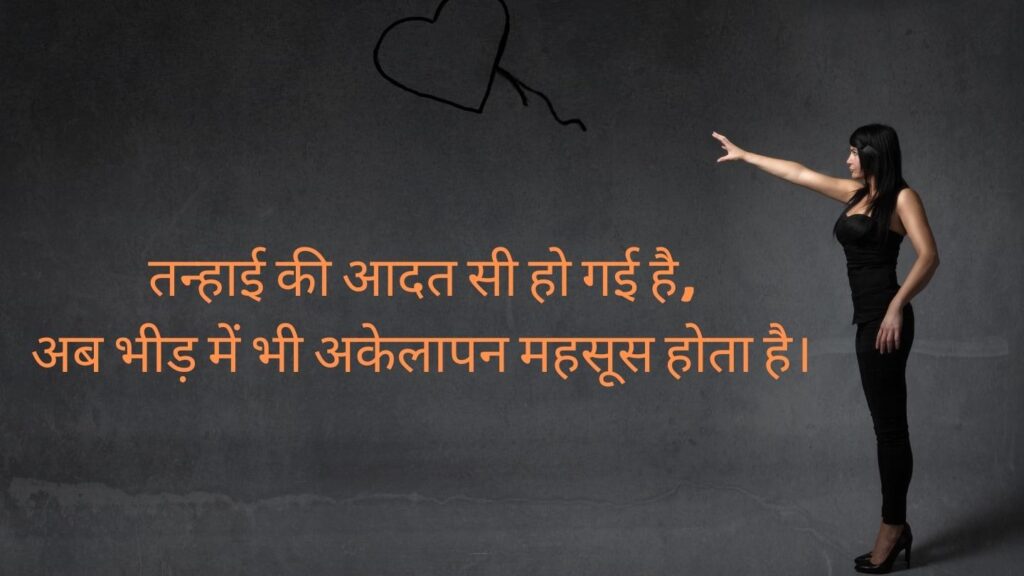 तन्हाई की आदत सी हो गई है,
अब भीड़ में भी अकेलापन महसूस होता है।